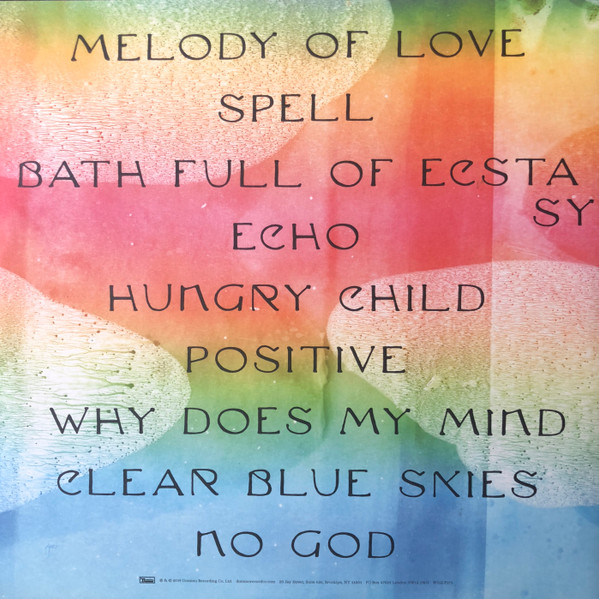 MELODY OF LOVE
SPELL
BATH FULL OF ECSTA
SY
ECHO
HUNGRY CHILD
POSITIVE
WHY DOES MY MIND
CLEAR BLUE SKIES
NO GOD
Domino